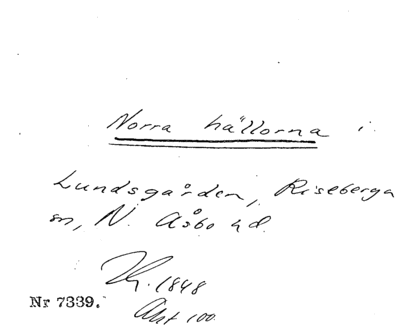 Norra hällorna i
Lundsgården, Riseberga
sn, N. Åsbo hd.
1848
Nr 7339.
Akt 100.